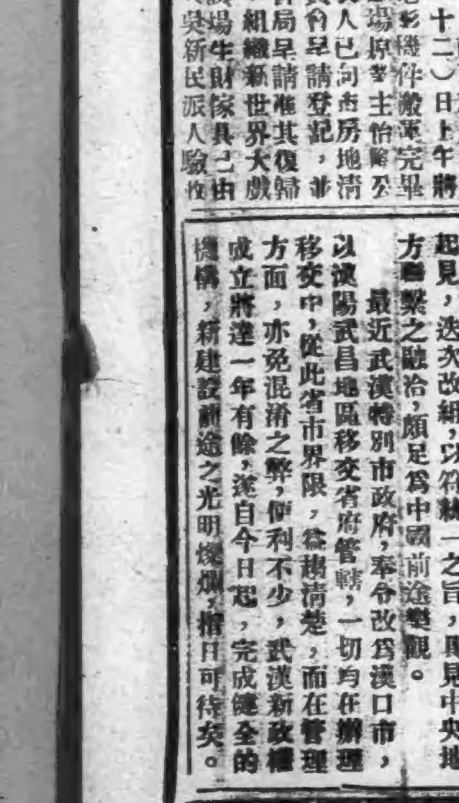 十二）日上午將
影機件搬運完畢
場原業主怡
人已向房地清
會早請登記，並
局早請准其復歸
組織新世界大戲
場生財家具已由
吳新民派人驗收
起見，迭次改組，以符統一之旨，具見中央地
方聯繫之融洽，頗足爲中國前途樂觀。
最近武漢特別市政府，奉令改爲漢口市，
以漢陽武昌地區移交省府管轄，一切均在辦理
移交中，從此省市界限，益趨清楚，而在管理
方面，亦免混淆之弊，便利不少，武漢新政權
成立將達一年有餘，遂自今日起，完成健全的
機構，新建設前途之光明燦爛，指日可待矣。